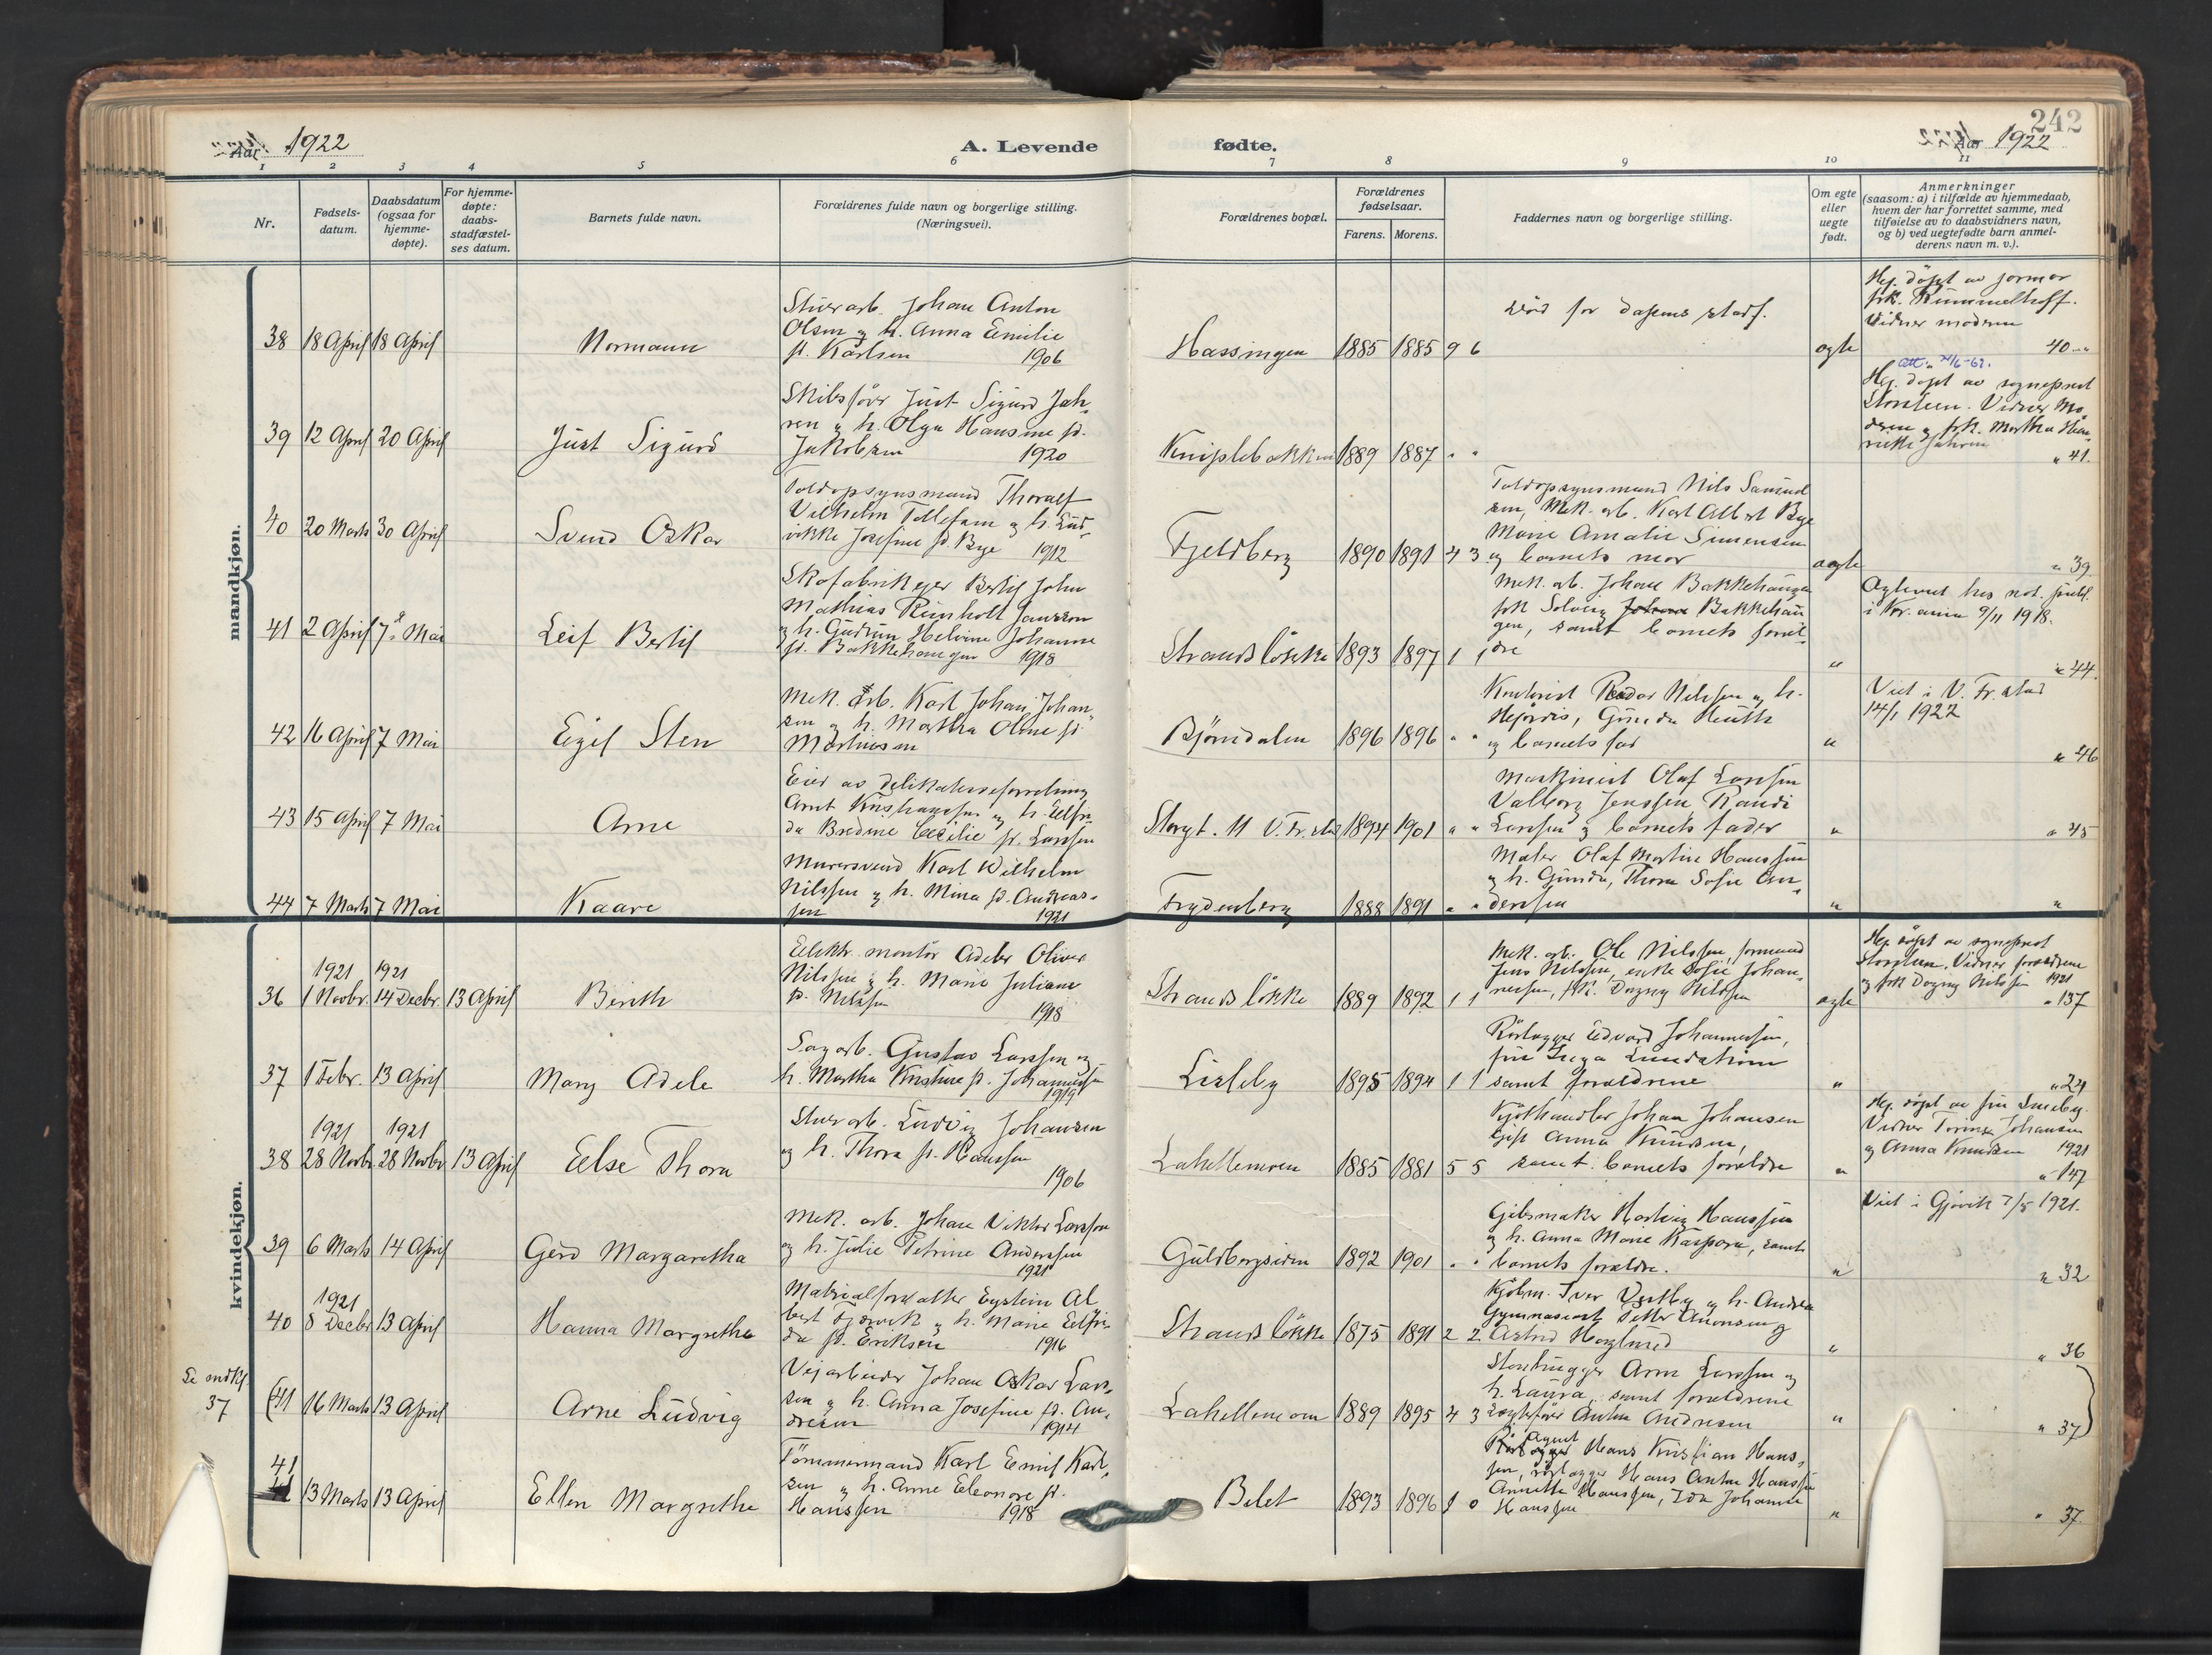 Aar 1922
A. Levende
fødte.
242
Aar 1922
1 2 3 4 5 6 7 8 9 10 11
Nr.
Fødsels-
datum.
Daabsdatum
(ogsaa for
hjemme-
døpte).
For hjemme-
døpte:
daabs-
stadfæstel-
ses datum.
Barnets fulde navn.
Forældrenes fulde navn og borgerlige stilling.
(Næringsvei).
Forældrenes bopæl.
Forældrenes
fødselsaar.
Farens. Morens.
Faddernes navn og borgerlige stilling.
Om egte
eller
uegte
født.
Anmerkninger
(saasom: a) i tilfælde av hjemmedaab,
hvem der har forrettet samme, med
tilføielse av to daabsvidners navn,
og b) ved uegtefødte barn anmel-
derens navn m. v.).
mandkjøn.
38 18 April 18 April Normann
Stuerarb. Johan Anton
Olsen og h. Anna Emilie
f. Karlsen 1906
Hassingen 1885 1885 9 6
død før daabens stadf.
egte
Hj. døpt av jormor
frk. Rummelhoff.
Vidner moderen
40
39 12 April 20 April Just Sigurd
Skibsfører Just Sigurd Jah-
ren og h. Olga Hansine f.
Jakobsen 1920
Kniplebakken 1889 1887 " "
Hj. døpt av sogneprest
Storsteen. Vidner Mo-
deren og frk. Martha Hen-
riette Jahren
" 41.
40 20 Marts 30 April Svend Oskar
Toldopsynsmand Thoralf
Vilhelm Tollefsen og h. Lud-
vikke Josefine f. Bye 1912
Fjeldberg 1890 1891 4 3
Toldopsynsmand Nils Samuel
sen, Mek. arb. Karl Albert Bye
Marie Amalie Simensen
og barnets mor
egte
" 39.
41 2 April 7 Mai Leif Bertil
Skofabrikeier Bertil John
Mathias Reinholt Jansson
og h. Gudrun Helvine Johanne
f. Bakkehaugen 1918
Strandsløkka 1893 1897 1 1
Mek. arb. Johan Bakkehaugen
frk Solveig Bakkehau
gen, samt barnets foræl-
dre
"
Egteviet hos not. publ.
i Kr.ania 9/11 1918.
" 44.
42 16 April 7 Mai Egil Sten
Mek. Arb. Karl Johan Johan
sen og h. Martha Oline f.
Martinsen
Bjørndalen 1896 1896 " "
Kontorist Reidar Nilssen og h.
Hjørdis, Gunda Huth
og barnets far
"
Viet i V. Fr.stad
14/1 1922
" 46
43 15 April 7 Mai Arne
Eier av delikatesseforretning
Arnt Kristiansen og h. Elfri-
da Bredine Cecilie f. Larssen
Storgt. 11 V. Fr.stad 1894 1901 " "
Maskinist Olaf Larssen
Valborg Jenssen Randi
Larssen og barnets fader
"
" 45
44 7 Marts 7 Mai Kaare
Murersvend Karl Wilhelm
Nilssen og h. Mina f. Andreas-
sen 1921
Frydenberg 1888 1891 " "
Maler Olaf Martin Hanssen
og h. Gunda, Thora Sofie An-
derssen
"
"
kvindekjøn.
1921 1921
36 1 Novbr. 14 Decbr. 13 April Birith
Elektr. montør Adeler Oliver
Nilssen og h. Marie Juliane
f. Nilssen 1918
Strandsløkka 1889 1892 1 1
Mek. arb. Ole Nilssen, formand
Jens Nilssen, enke Sofie Johan-
nessen, frk. Dagny Nilssen
egte
Hj. døpt av sogneprest
Storsteen. Vidner forældrene
og frk Dagny Nilssen 1921
" 137
37 1 Febr. 13 April Mary Adele
Sagarb. Gustav Larssen og
h. Martha Kristine f. Johannessen
1919
Lisleby 1895 1894 1 1
Rørlægger Edvard Johannessen,
fru Inga Lundstrøm
samt forældrene
"
" 24
1921 1921
38 28 Novbr. 28 Novbr 13 April Else Thora
Stuerarb. Ludvig Johansen
og h. Thora f. Hanssen
1906
Lahellemoen 1885 1881 5 5
Kjøthandler Johan Johansen
Gift Anna Knudsen,
samt barnets forældre
"
Hj. døpt av fru Smeby.
Vidner Torine Johansen
og Anna Knudsen 1921
" 147
39 6 Marts 14 April Gerd Margaretha
Mek. arb. Johan Viktor Larsson
og h. Julie Petrine Anderssen
1921
Guldbergsiden 1892 1901 " "
Gibsmaker Hartvig Hanssen
og h. Anna Marie Kaspara, samt
barnets forældre.
"
Viet i Gjøvik 7/5 1921.
" 32
1921
40 8 Decbr 13 April Hanna Margrethe
Matrialforvalter Eystein Al
bert Tjærvik og h. Marie Elfri
da f. Eriksen 1916
Strandsløkka 1875 1891 2 2
Kjøbm. Iver Vestby og h. Andrea
Gymnasiast Petter Aronsen og
Astrid Hoglund
"
" 36
Se mdkj.
37
(41 16 Marts 13 April Arne Ludvig
Veiarbeider Johan Oskar Lars-
sen og h. Anna Josefine f. An-
dresen 1914
Lahellemoen 1889 1895 4 3
Stenhugger Arne Larssen og
h. Laura, samt forældrene
Anton Andresen
"
" 37)
41
13 Marts 13 April Ellen Margrethe
Tømmermand Karl Emil Karl-
sen og h. Anne Eleonore f.
Hanssen 1918
Belet 1893 1896 1 0
Agent
Hans Kristian Hans-
sen, rørlægger Hans Anton Hanssen
Annette Hanssen, Ida Johanne
Hanssen
"
" 37.